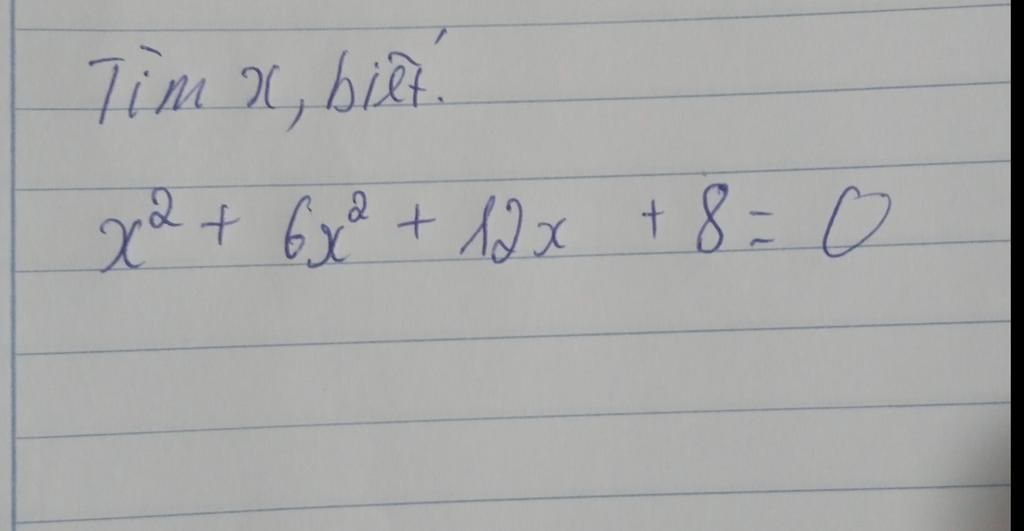 Tìm x, biết.
x² + 6x² + 12x + 8 = 0